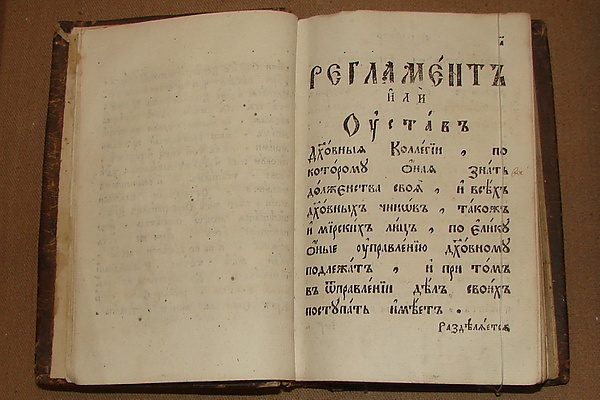 РЕГЛАМЕ́НТЪ
И҆ЛЍ
ОУ҆СТА́ВЪ
Дꙋхо́вныѧ Колле́гїи , по
кото́рому ѻ҆́наѧ зна́ть
до́лженства своѧ̀ , и҆ всѣ́хъ
дꙋхо́вныхъ чинѡ́въ , та́кожъ
и҆ мїрски́хъ ли́цъ , по є҆ли́ку
ѻ҆́ные оу҆правле́нїю дꙋхо́вному
подлежа́тъ , и҆ при то́мъ
въ ѿправле́нїи дѣ́лъ свои́хъ
поступа́ть и҆мѣ́етъ .
Раздѣлѧ́етсѧ